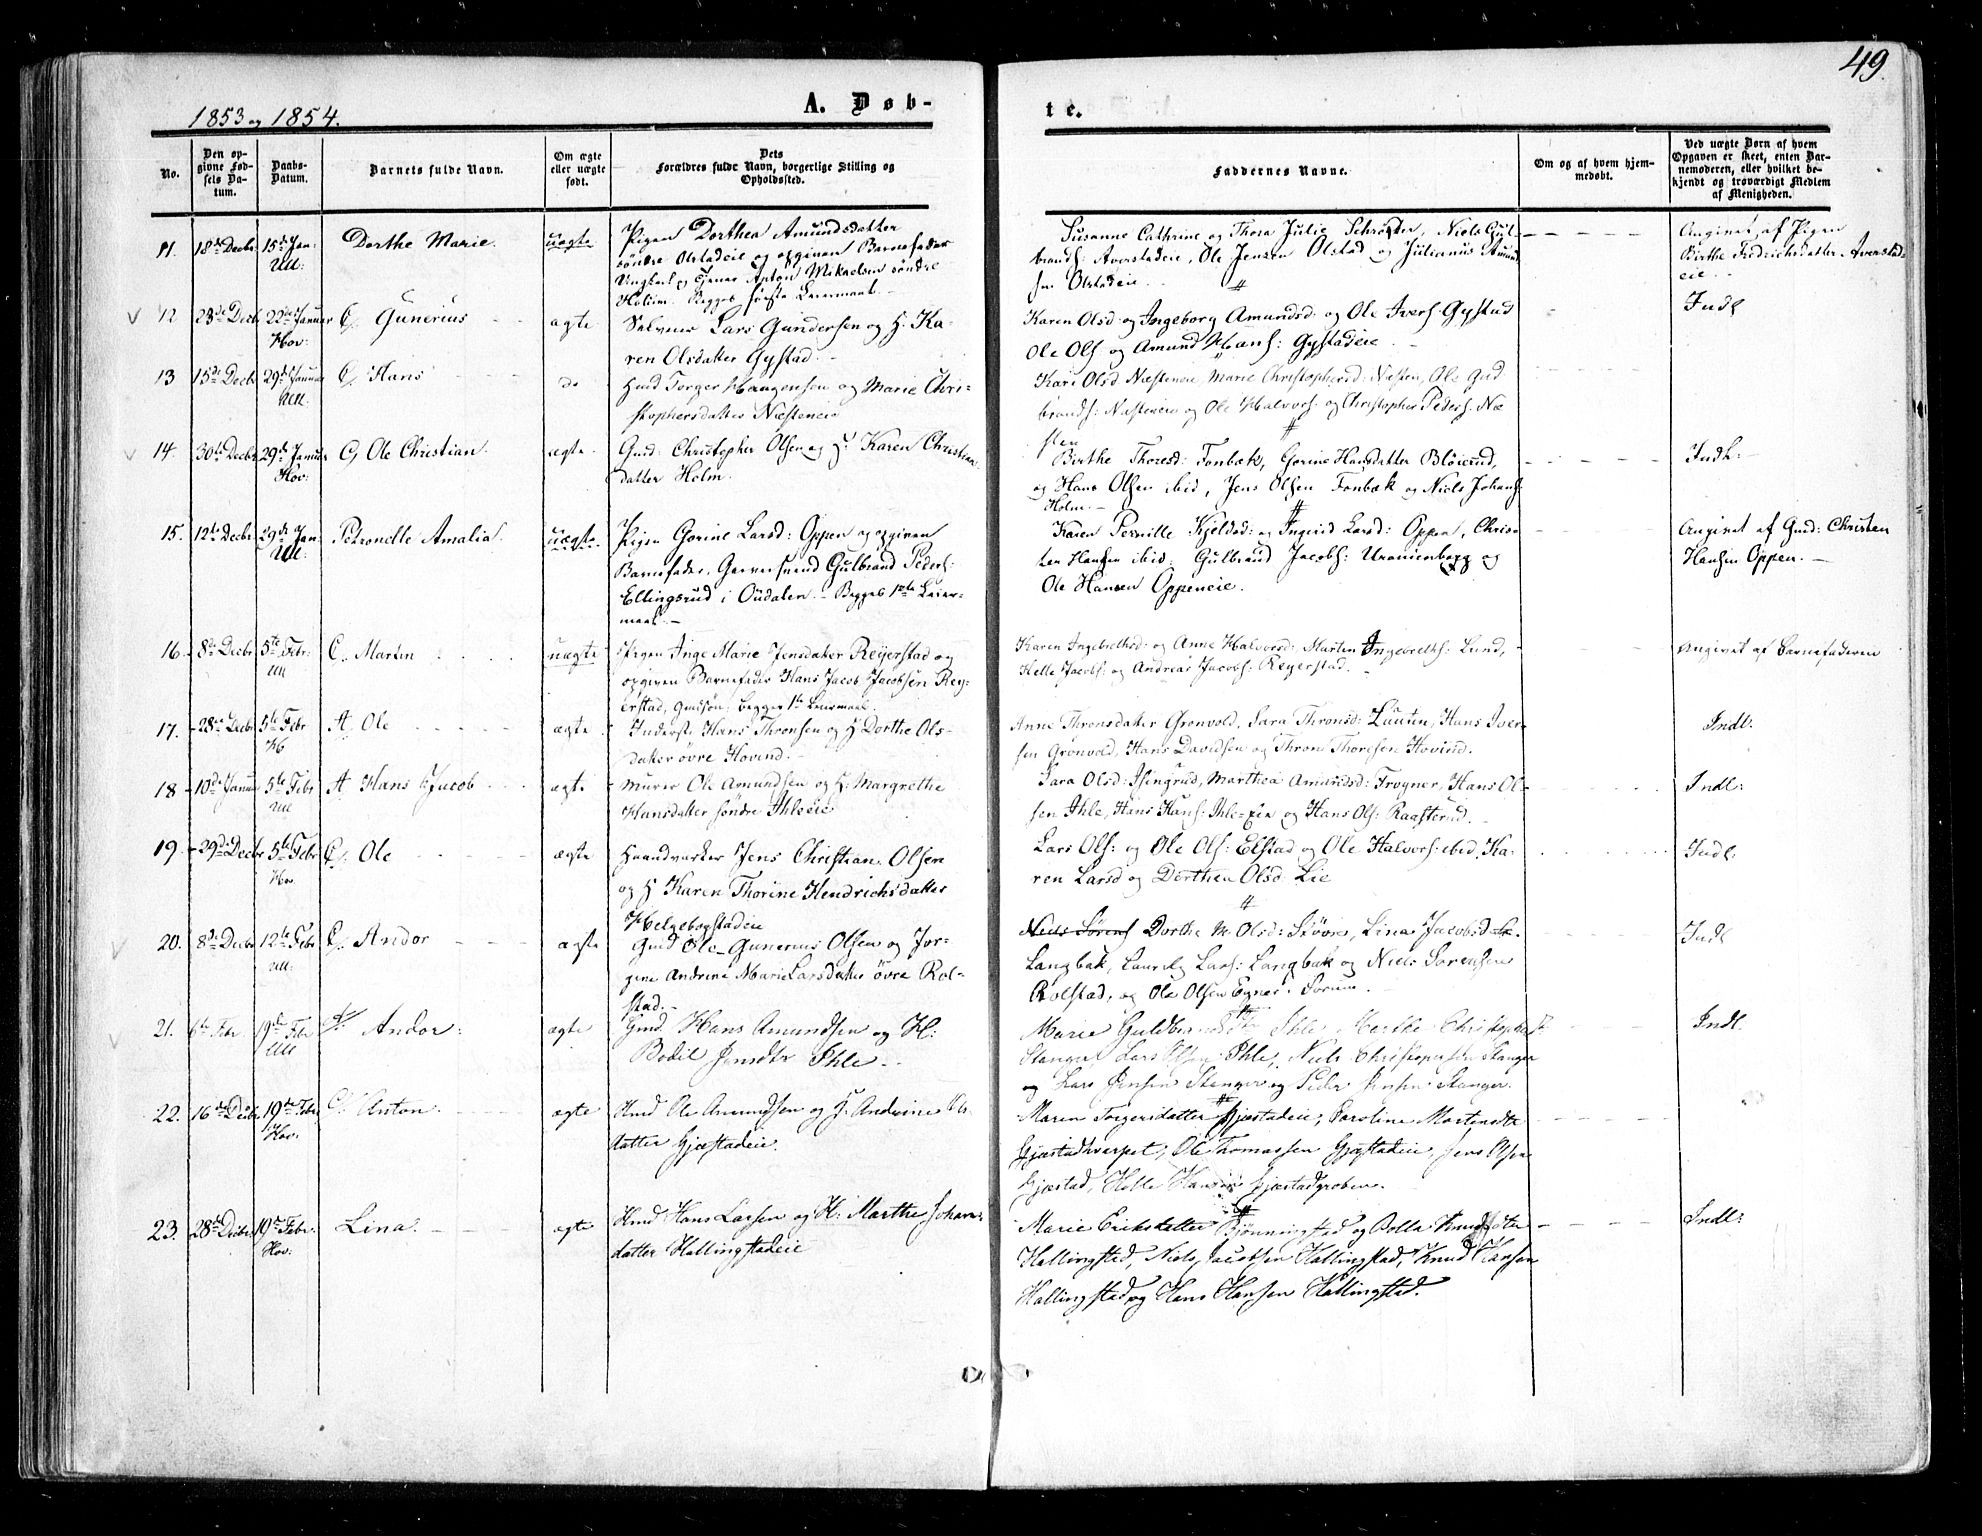 49.
1853 og 1854.
A. Døb-
te.
No.
Den op-
givne Fød-
sels Da-
tum.
Daabs-
Datum.
Barnets fulde Navn.
Om ægte
eller uægte
født.
Dets
Forældres fulde Navn, borgerlige Stilling og
Opholdssted.
Faddernes Navne.
Om og af hvem hjem-
medøbt.
Ved uægte Børn af hvem
Opgaven er skeet, enten Bar-
nemoderen, eller hvilket be-
kjendt og troværdigt Medlem
af Menigheden.
11. 18de Decbr 15de Jan: Dorthe Marie. uægte Pigen Dorthea Amundsdatter
Ull:
søndre Olstadeie og opgiven Barnefader
Ungkarl og Tjener Anton Mikaelsen søndre
Holum. Begges første Leiermaal.
Susanne Cathrine og Thora Julie Schrøder, Niels Gul-
brands: Averstadeie, Ole Jensen Olstad og Julianus Amund
sen Olstadeie.
Angivet af Pigen
Birthe Fredrichsdatter Averstad-
eie
12 23de Decbr 22de Januar Gunerius ægte Selveier Lars Gundersen og H. Ka-
Hov:
ren Olsdatter Gystad.
Karen Olsd: og Ingeborg Amundsd: og Ole Ivers: Gystad
Ole Ols: og Amund Hans: Gystadeie.
Indl
13 15de Decbr 29de Januar Hans do Hmd Torger Haagensen og Marie Chri-
Ull:
stophersdatter Næsteneie
Kari Olsd Næsteneie, Marie Christophersd: Næsten, Ole Gud
brands: Næsteneie og Ole Halvors: og Christopher Peders: Næ
sten
14. 30te Decbr 29de Januar Ole Christian. ægte. Gmd: Christopher Olsen og H. Karen Christian
Hov:
datter Holm.
Birthe Thoresd: Fonbæk, Gorine Hansdatter Bløierud,
og Hans Olsen ibid, Jens Olsen Fonbæk og Niels Johans:
Holm.
Indl:
15. 12te Decbr 29de Jan Petronelle Amalia. uægte. Pigen Gorine Larsd: Oppen og opgiven
Ull:
Barnefader, Garversvend Gulbrand Peders:
Ellingsrud i Oudalen. Begges 1ste Leier-
maal.
Karen Pernille Kjeldsd: og Ingrid Larsd: Oppen, Chris-
ten Hansen ibid: Gulbrand Jacobs: Uranienborg og
Ole Hansen Oppeneie.
Angivet af Gmd: Christen
Hansen Oppen.
16. 8de Decbr 5te Febr: Martin uægte Pigen Inge Marie Jensdatter Reyerstad og
Ull
opgiven Barnefader Hans Jacob Jacobsen Rey-
erstad, Gmdsøn. begges 1ste Leiermaal.
Karen Ingebrethsd: og Anne Halvorsd: Morten Ingebreths: Lund,
Helle Jacobs: og Andreas Jacobs: Reyerstad.
Angivet af Barnefaderen
17. 28de Decbr 5te Febr A. Ole ægte Inderste Hans Thronsen og H Dorthe Ols-
H
datter øvre Hovind.
Anne Thronsdatter Grønvold, Sara Thronsd: Hans Iver-
sen Grønvold, Hans Davidsen og Thron Thoresen Hovind.
Indl:
18 10de Januar 5te Febr A Hans Jacob ægte Murer Ole Amundsen og H. Margrethe
Ull
Hansdatter søndre Ihleeie
Sara Olsd: Isingrud, Marthea Amundsd: Frogner, Hans Ol-
sen Ihle, Hans Hans: Ihle-Eie og Hans Ols: Raasterud.
Indl:
19. 29de Decbr 5te Febr Ole ægte Haandværker Jens Christian Olsen
Hov.
og H Karen Thorine Hendrichsdatter
Helgebogstadeie
Lars Ols: og Ole Ols: Elstad og Ole Halvors: ibid, Ka-
ren Larsd og Dorthea Olsd: Lie
Indl:
20. 8de Decbr 12te Febr Andor ægte Gmd Ole Gunerius Olsen og Jor-
Ull:
gine Andrine Marie Larsdatter øvre Rol-
stad.
Niels Sørens Dorthe M. Olsd: Lina Jacobsd
Langbak, Lars: Langbak og Niels Sørensen
Rolstad, og Ole Olsen Egner. Sørum.
Indl
21. 6te Febr. 19de Febr Andor. ægte Gmd. Hans Amundsen og H:
Ull
Bodil Jensdtr Ihle.
Marie Ihle, Marthe
Stanger, Lars Olsen Ihle, Niels Christophersen Stanger
og Lars Jensen Stanger og Peder Jensen Stanger.
Indl.
22. 16de Decbr 19de Febr Anton. ægte Hmd Ole Amundsen og H. Andrine Ols-
Hov:
datter Gjæstadeie.
Maren Torgersdatter Gjæstadeie, Caroline Mortensdtr
Gjæstadhverpet, Ole Thomassen Gjæstadeie, Jens Olsen
Gjæstad, Helle Hansen Gjæstadgroben.
23. 28de Decbr. 19de Febr. Lina. ægte Hmd Hans Larsen og H: Marthe Johans
Hov:
datter Hallingstadeie
Marie Eriksdatter Bjønningstad og Bolla
Hallingstad, Niels Jacobsen Hallingstad, Knud Hansen
Hallingstad og Hans Hansen Hallingstad.
Indl: